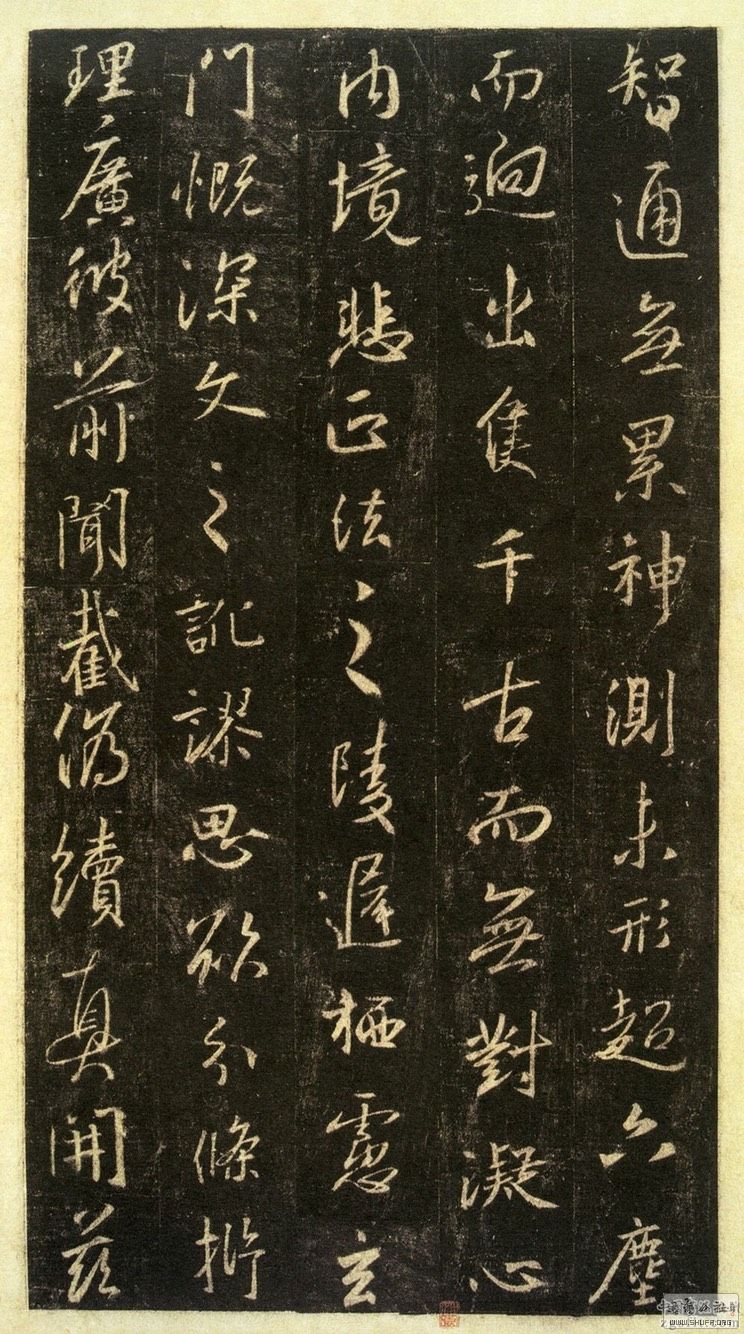 智通無累神測未形超六塵
而迥出隻千古而無對凝心
内境悲正法之陵遲栖慮玄
門慨深文之訛謬思欲分條析
理廣彼前聞截偽續真開茲
WWW.SHUFA.ORG